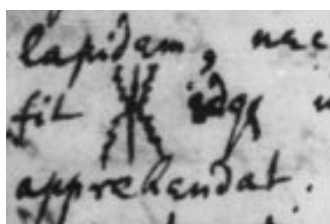 lapidem, nec
fit idqȝ
apprehendat.